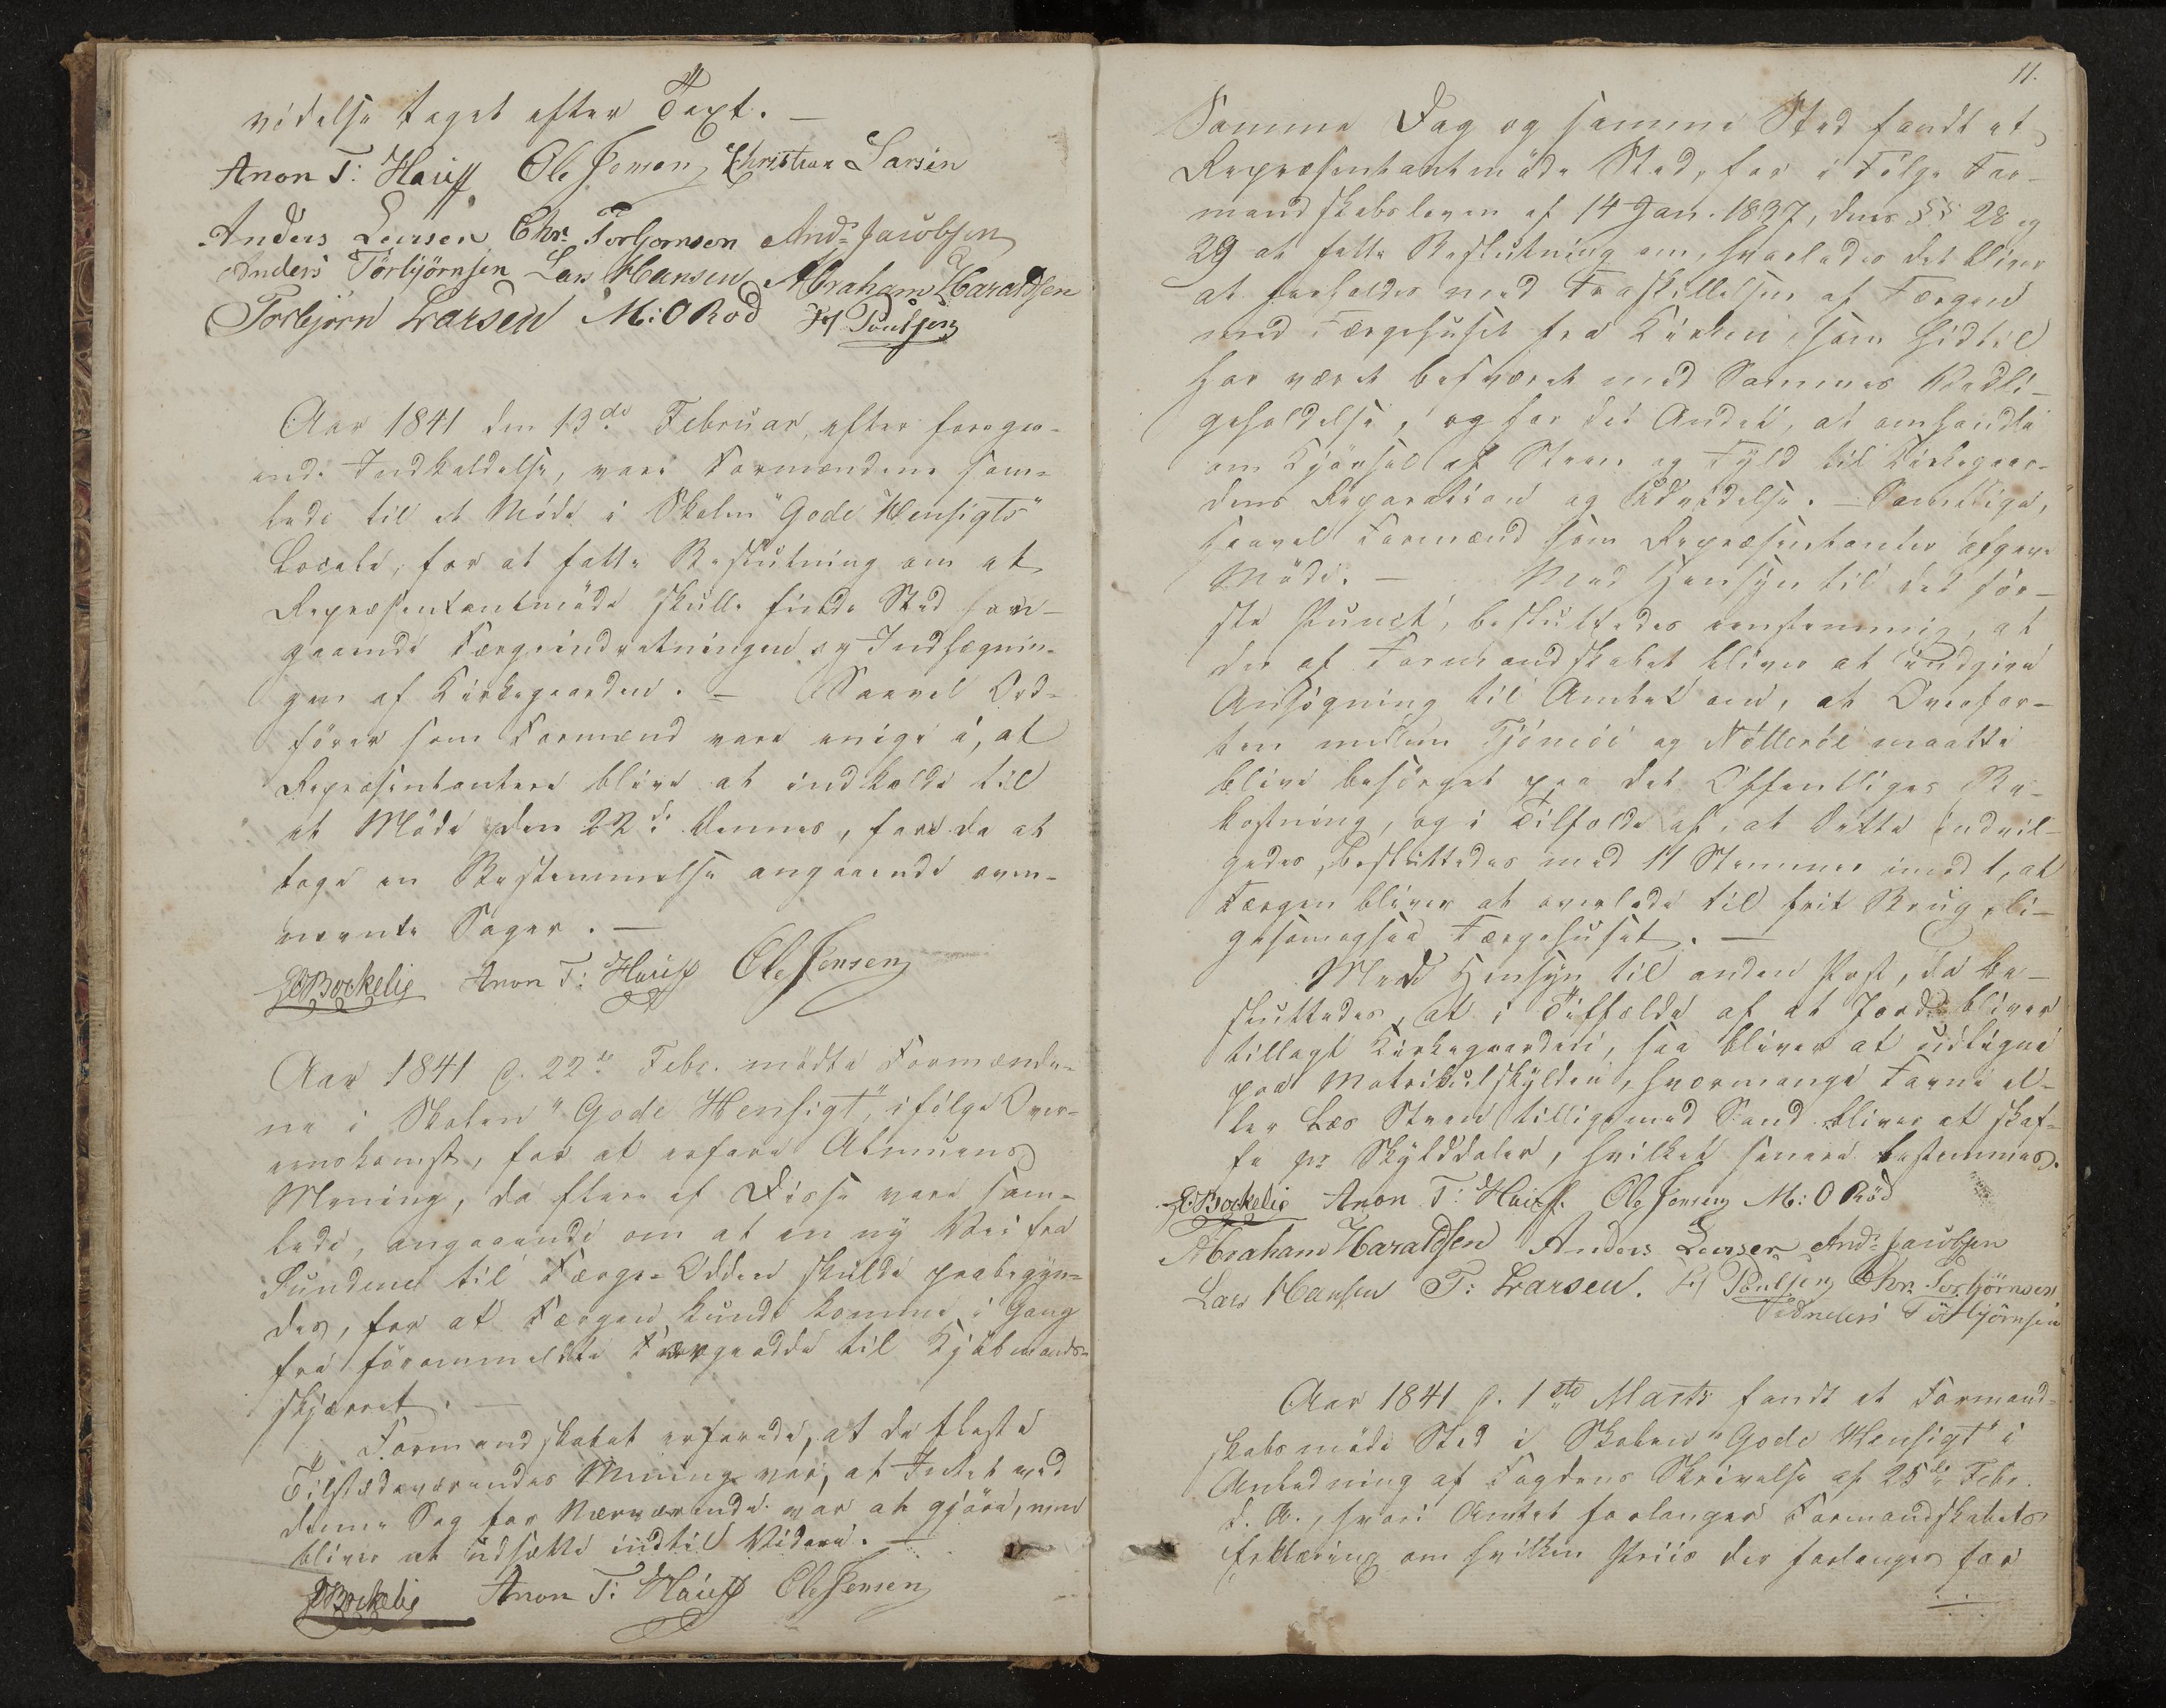 videlse taget efter Text. —
Anon T: Hauff Ole Jensen Christian Larsen
Anders Larsen Chr. Torbjornsen And. Jacobsen
Anders Törbjörnsen Lars Hansen Abraham Haraldsen
Torbjörn Larsen M: O Rød H Poulsen
Aar 1841 den 13de Februar, efter foregaa-
ende Indkaldelse, vare Formændene sam-
lede til et Møde i Skolen "Gode Hensigts"
Locale, for at fatte Beslutning om at
Repræsentantmøde skulle finde Sted fore-
gaaende Færgeindretningen og Indhægnin-
gen af Kirkegaarden. — Saavel Ord-
fører som Formænd vare enige i, at
Repræsentantere blive at indkalde til
et Møde den 22de dennes, for da at
tage en Bestemmelse angaaende oven-
nævnte Sager. —
Bockelie Anon T: Hauff Ole Jensen
Aar 1841 d. 22de Febr. mødte Formænde-
ne i Skolen "Gode Hensigt", ifølge Over-
enskomst, for at erfare Almuens
Mening, da flere af Disse vare sam-
lede, angaaende om at en ny Vei fra
Sundene til Færge-Odden skulde paabegyn-
des, for at Færgen kunde komme i Gang
fra förommeldte Færgeodde til Kjöbmands-
skjæret. —
Formandskabet erfarede, at de fleste
Tilstedeværendes Mening var, at Intet ved
denne Sag for Nærværende var at gjöre, men
bliver at udsætte indtil Videre. —
Bockelie Anon T: Hauff Ole Jensen
11.
Samme Dag og samme Sted fandt et
Repræsentantmøde Sted, for i Følge For-
mandskabsloven af 14 Jan. 1837, dens §§ 28 og
29 at fatte Beslutning om, hvorledes det bliver
at forholde med Fraskillelsen af Færgen
med Færgehuset fra Kirken, som hidtil
har været besværet med Sammes Vedli-
geholdelse, og for det Andet, at omhandle
om Kjörsel af Steen og Fyld til Kirkegaar-
dens Reparation og Udvidelse. — Samtlige,
saavel Formænd som Repræsentanter afgave
Møde. — Med Hensyn til det för-
ste Punct, besluttedes eenstemmig, at
der af Formandskabet bliver at indgive
Ansögning til Amtet om, at Overfar-
ten mellem Tjömöe og Nötteröe maatte
blive besörget paa det Offentliges Be-
kostning, og i Tilfælde af, at dette indvil-
gedes, besluttedes med 11 Stemmer imod 1, at
Færgen bliver at overlade til frit Brug, li-
gesomogsaa Færgehuset. —
Med Hensyn til anden Post, da be-
sluttedes, at i Tilfælde af at Jord bliver
tillagt Kirkegaarden, saa bliver at udligne
paa Matrikulskylden, hvormange Favne el-
ler Læs Steen tilligemed Sand bliver at skaf-
fe pr Skylddaler, hvilket senere bestemmes.
Bockelie Anon T: Hauff. Ole Jensen M: O Rød
Abraham Haraldsen Anders Larsen And. Jacobsen
Lars Hansen T: Larsen. H Poulsen Chr. Torbjörnsen
Anders Törbjörnsen
Aar 1841 d. 1ste Marts fandt et Formand-
skabsmøde Sted i Skolen "Gode Hensigt" i
Anledning af Fogdens Skrivelse af 25de Febr.
d. A., hvori Amtet forlanger Formandskabets
Erklæring om hvilken Priis der forlanges for